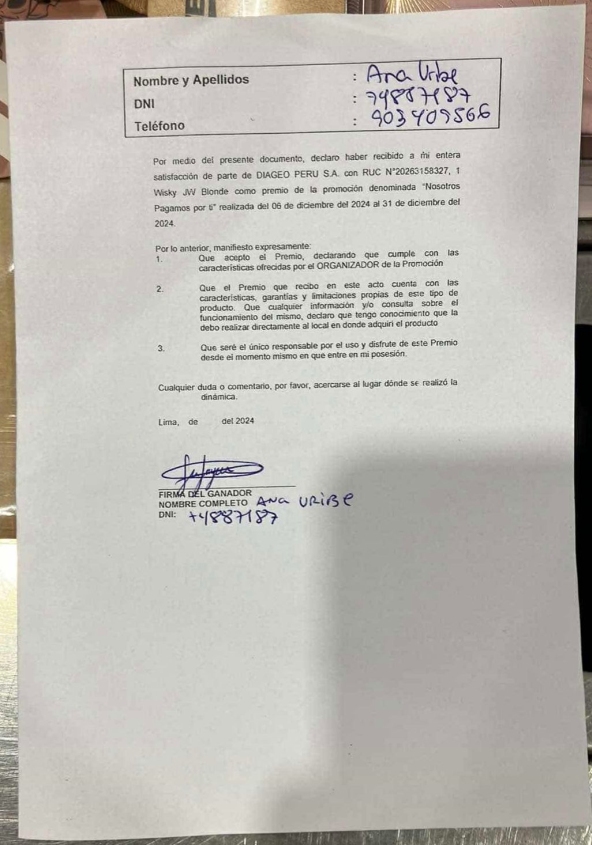 Nombre y Apellidos : Ana Uribe
DNI : 74887187
Teléfono : 903409566
Por medio del presente documento, declaro haber recibido a mi entera
satisfacción de parte de DIAGEO PERU S.A. con RUC N°20263158327, 1
Wisky JW Blonde como premio de la promoción denominada "Nosotros
Pagamos por ti" realizada del 06 de diciembre del 2024 al 31 de diciembre del
2024.
Por lo anterior, manifiesto expresamente:
1. Que acepto el Premio, declarando que cumple con las
características ofrecidas por el ORGANIZADOR de la Promoción
2. Que el Premio que recibo en este acto cuenta con las
características, garantías y limitaciones propias de este tipo de
producto. Que cualquier información y/o consulta sobre el
funcionamiento del mismo, declaro que tengo conocimiento que la
debo realizar directamente al local en donde adquirí el producto
3. Que seré el único responsable por el uso y disfrute de este Premio
desde el momento mismo en que entre en mi posesión.
Cualquier duda o comentario, por favor, acercarse al lugar dónde se realizó la
dinámica.
Lima, de del 2024
FIRMA DEL GANADOR
NOMBRE COMPLETO ANA URIBE
DNI: 74887187